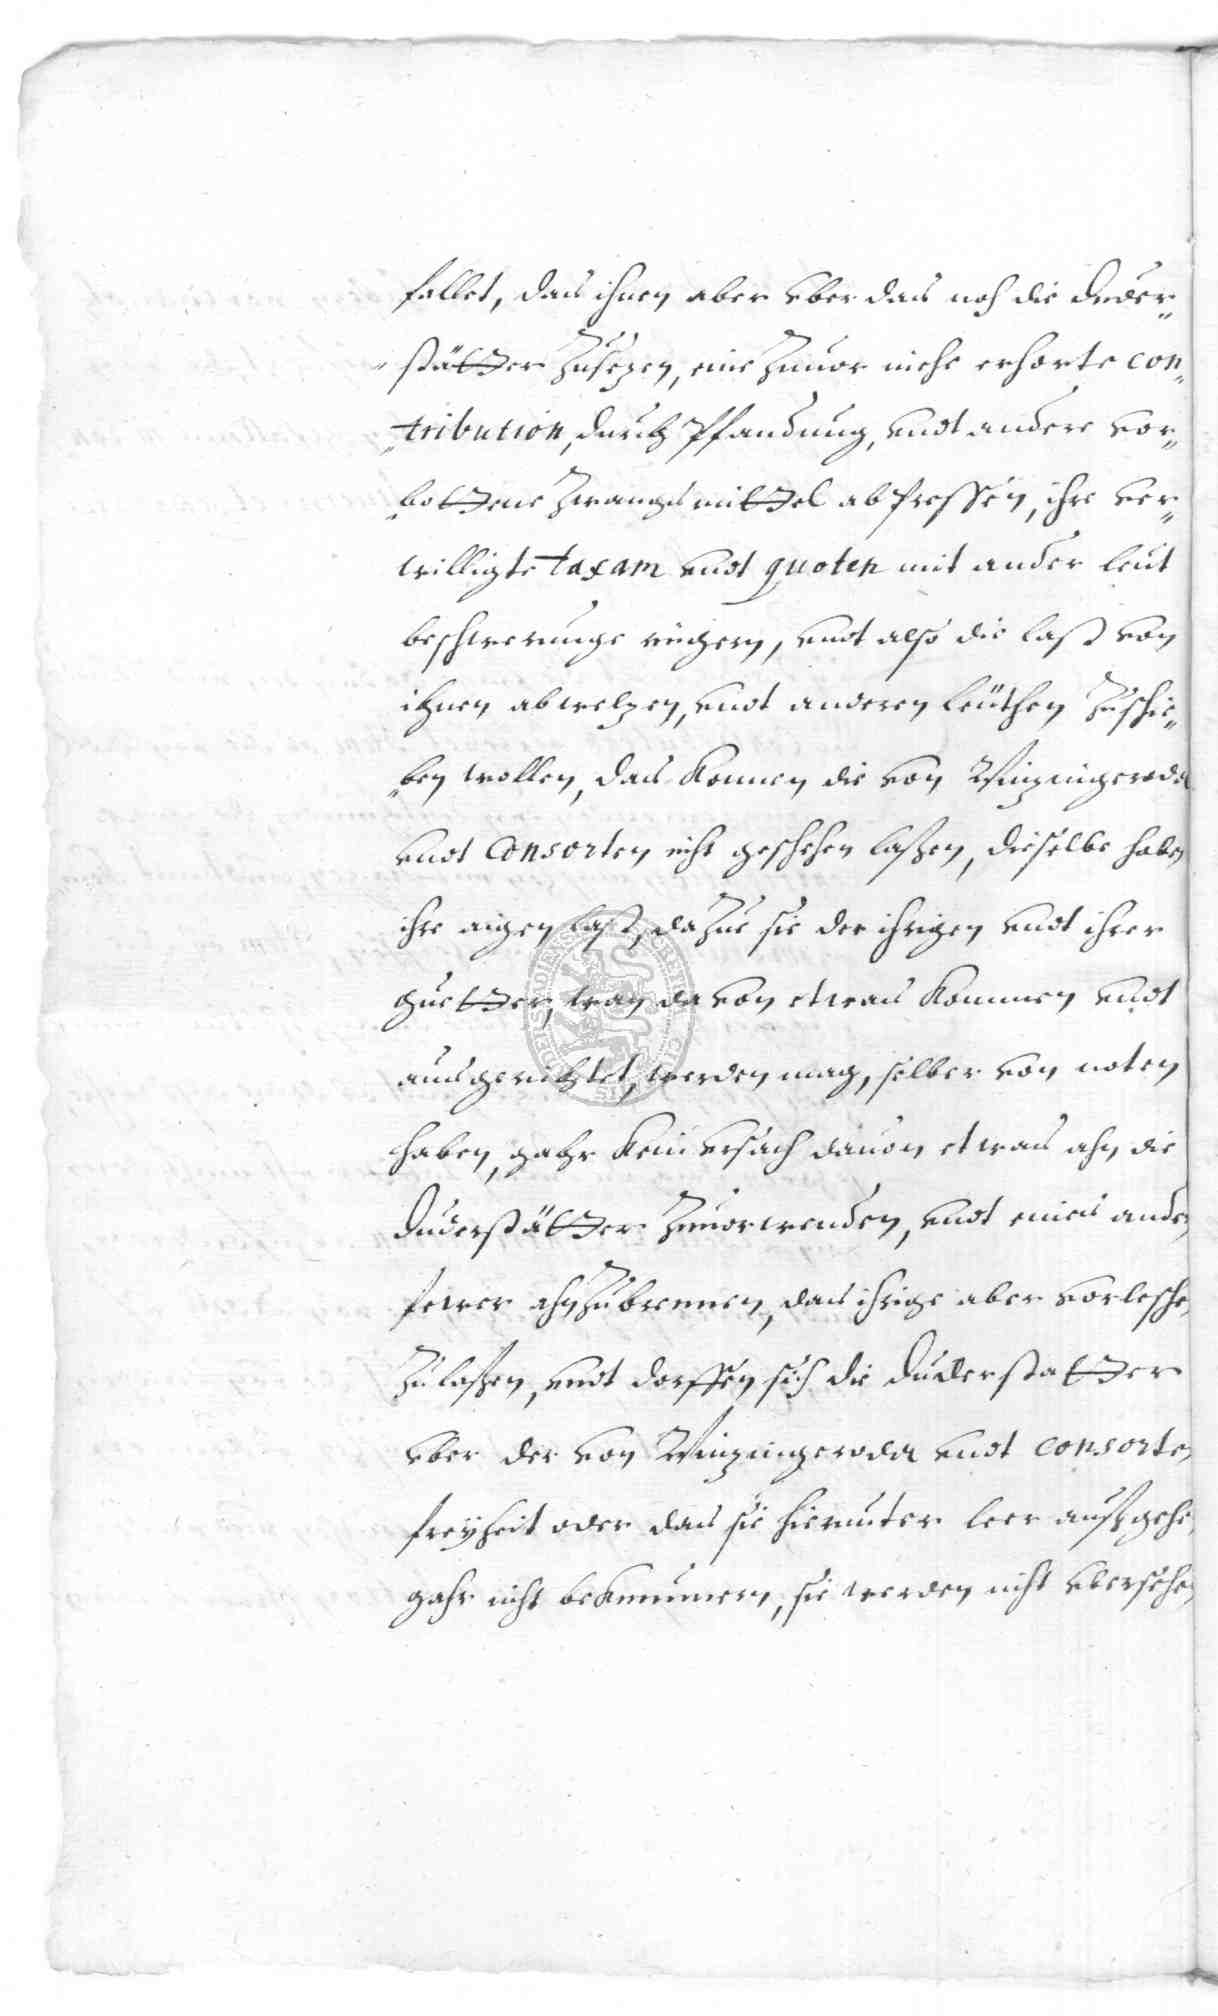 fallet, das ihnen aber vber das noch die Duder-
stätter zusezen, eine zuuor niehe erhorte con-
tribution, durch Pfandung, vndt andere vor-
bottene zwangs mittel ab pressen, ihre ver-
willigte taxam vndt quoten mit ander leut
beschwerunge ringern, vndt also die last von
ihnen abwelzen, vndt anderen leüthen zuschie-
ben wollen, das konnen die von Winzingeroda
vndt Consorten nicht geschehen laßen, dieselbe haben
ihre aigen last, dazue sie der ihrigen vndt ihrer
guetter, wan da von etwas kommen vndt
ausgerichtet werden mag, selber von noten
haben, gahr kein vrsach dauon etwas ahn die
Duderstätter zuuorwenden, vndt eines ander
fewer ahnzubrennen, das ihrige aber vorleschen
zulaßen, vndt dorffen sich die Duderstatter
vber der von Winzingeroda vndt consorten
freyheit oder das sie hierunter leer außgehen
gahr nicht bekummern, sie werden nicht vbersehen